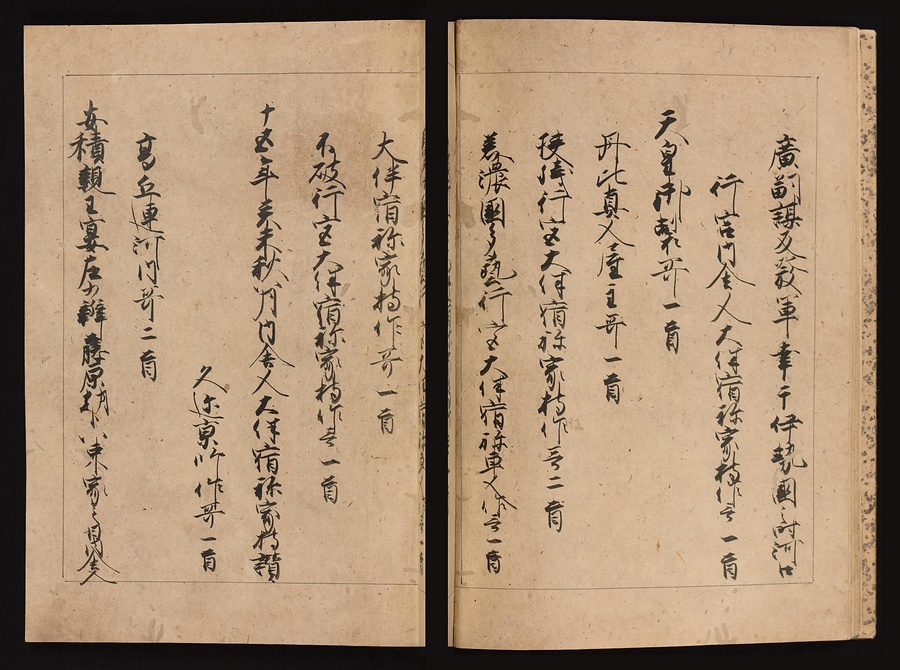 廣嗣謀反發軍幸于伊勢國之時河口
行宮内舎人大伴宿祢家持作哥一首
天皇御製哥一首
丹比真人屋主哥一首
狭残行宮大伴宿祢家持作哥二首
美濃國多藝行宮大伴宿祢東人作哥一首
大伴宿祢家持作哥一首
不破行宮大伴宿祢家持作哥一首
十五年癸未秋八月内舎人大伴宿祢家持讃
久迩京師作哥一首
高丘連河内哥二首
安積親王宴左少辨藤原朝臣八束家之日内舎人